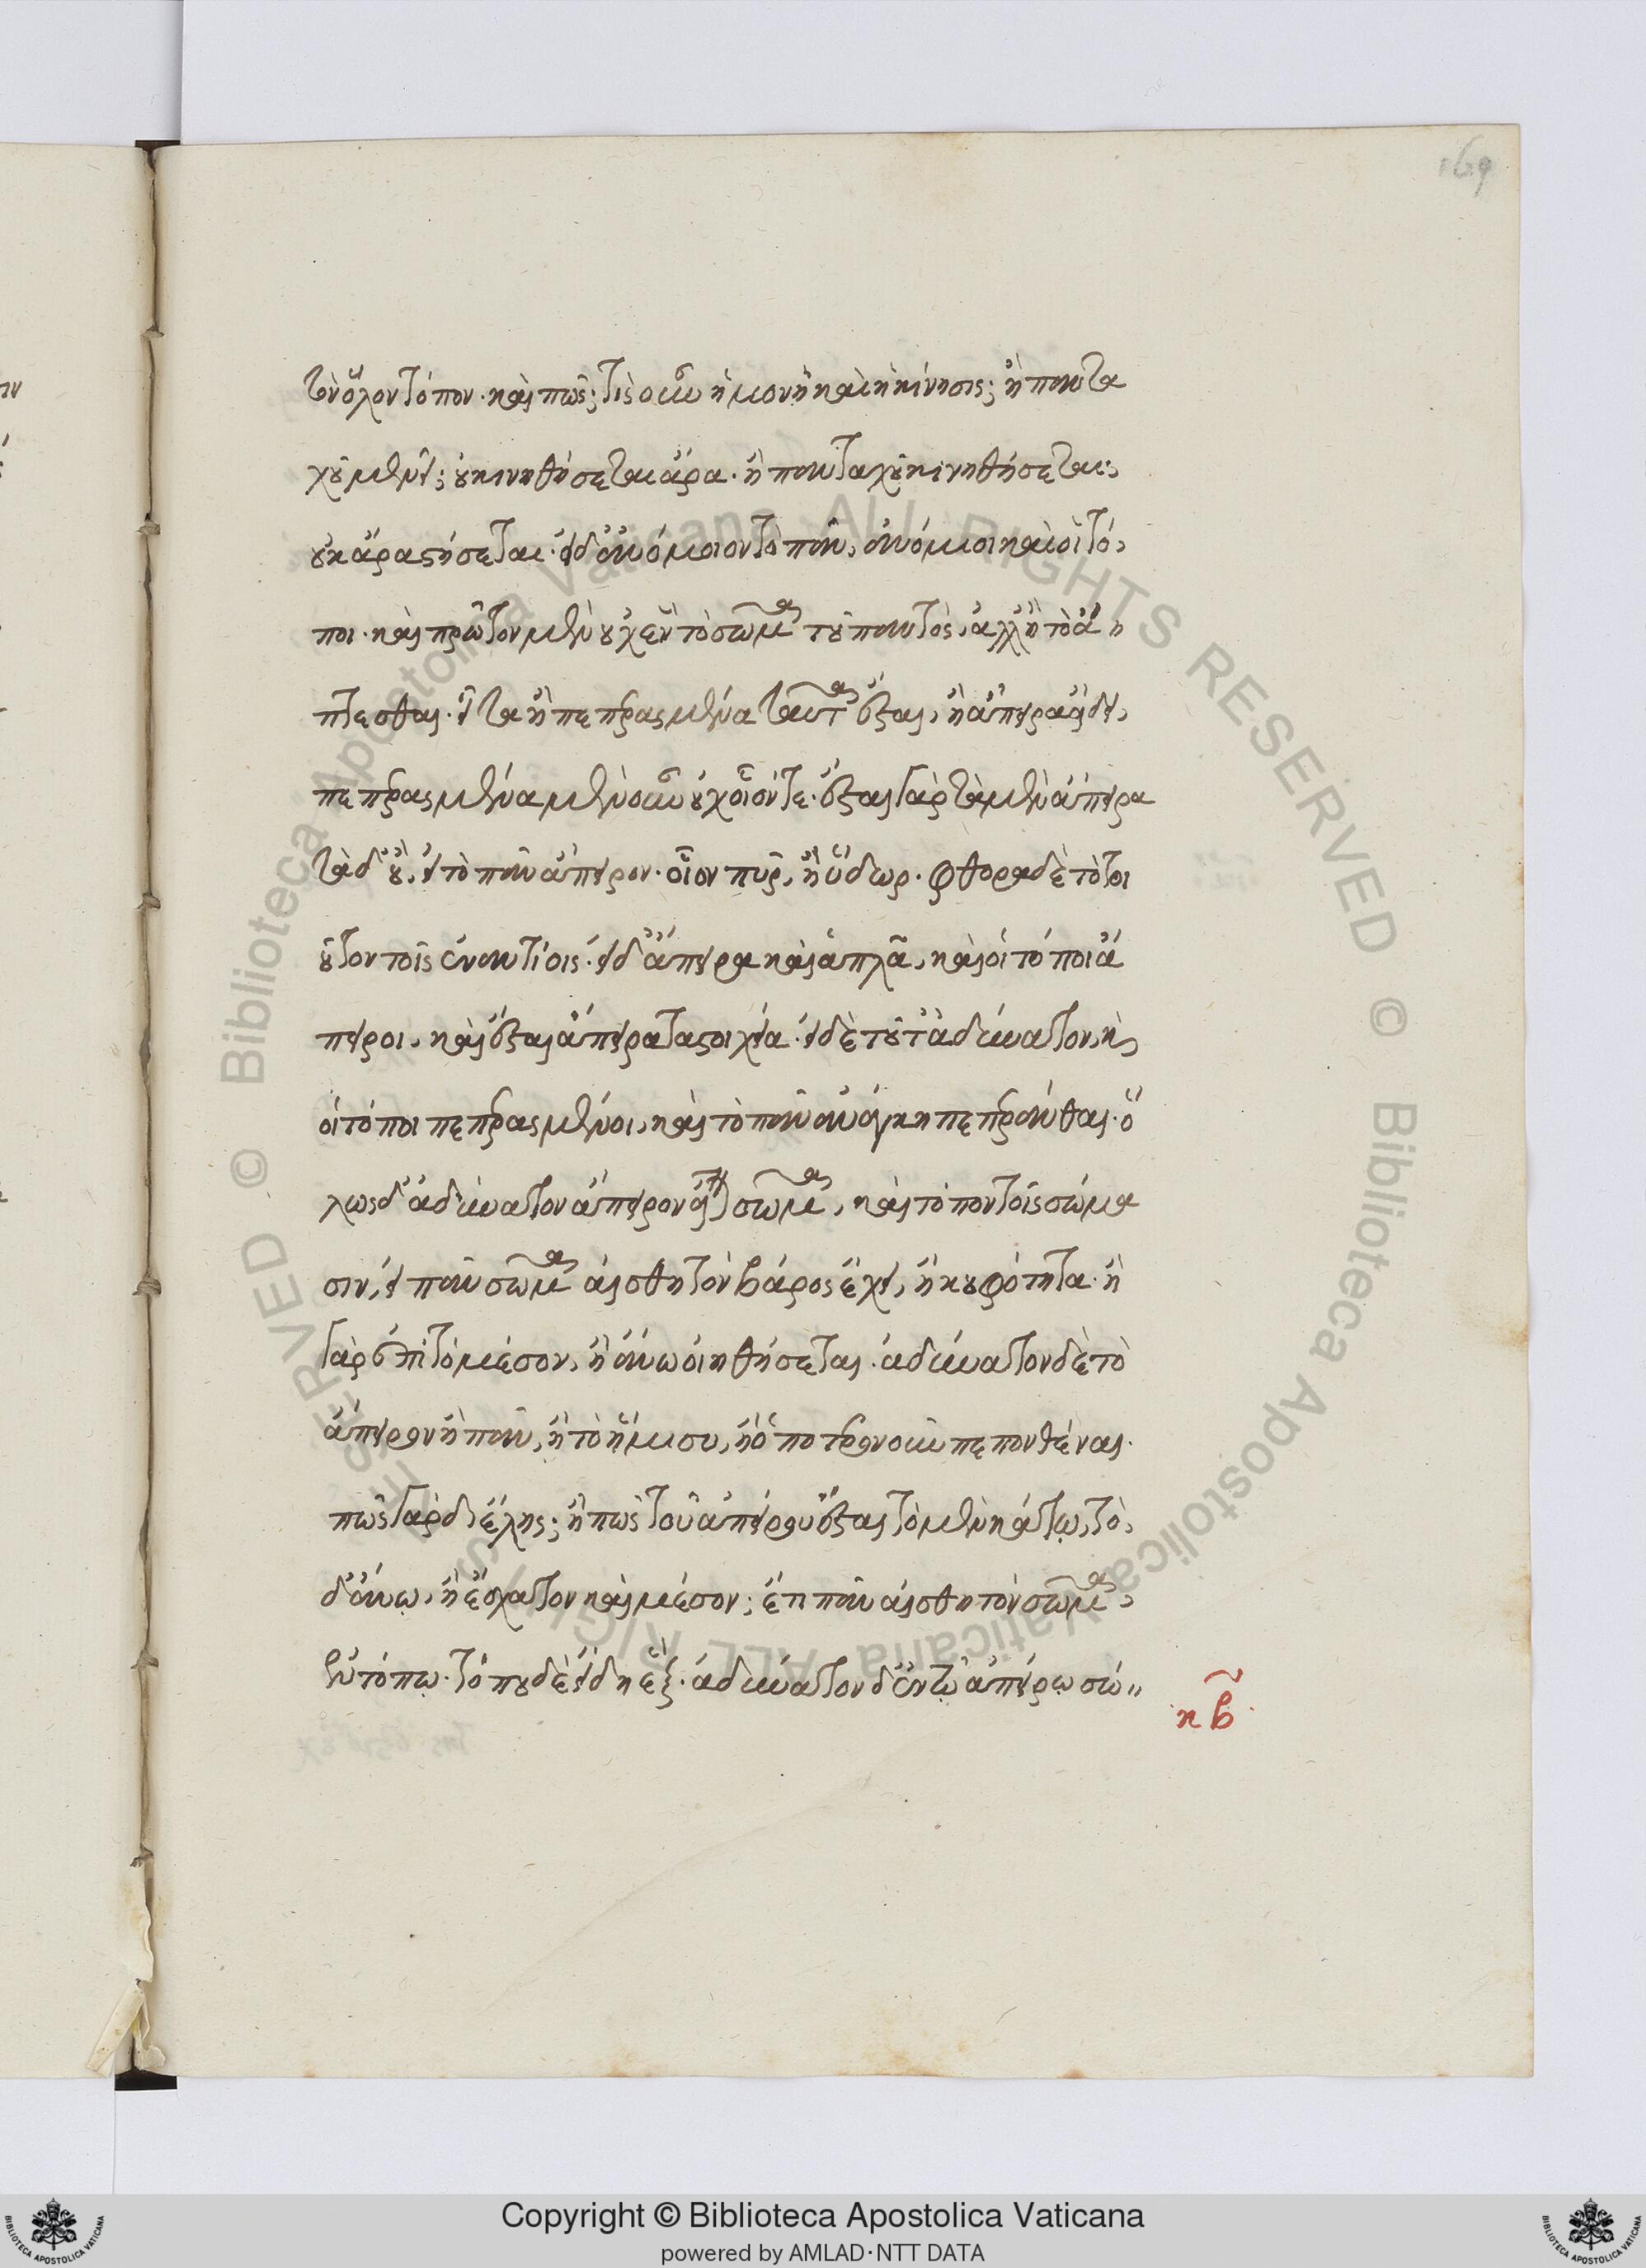 169
τὸν ὅλον τόπον· καὶ πῶς; τίς οὖν ἡ μονὴ καὶ ἡ κίνησις; ἢ πανта
χοῦ μενεῖ; οὐ κινηθήσεται ἄρα· ἢ πανταχοῦ κινηθήσεται;
οὐκ ἄρα στήσεται· εἰ δ' ἀνόμοιον τὸ πᾶν, ἀνόμοιοι καὶ οἱ τό,
ποι· καὶ πρῶτον μὲν οὐχ ἓν τὸ σῶμα τοῦ παντός, ἀλλ' ἢ τῷ ἅ
πτεσθαι· εἶτα ἢ πεπερασμένα ταῦτ' ἔσται, ἢ ἄπειρα εἴδει,
πεπερασμένα μὲν οὖν οὐχ οἷόν τε· ἔσται γὰρ τὰ μὲν ἄπειρα
τὰ δ' οὔ, εἰ τὸ πᾶν ἄπειρον· οἷον πῦρ, ἢ ὕδωρ· φθορὰ δὲ τὸ τοι
οῦτον τοῖς ἐναντίοις· εἰ δ' ἄπειρα καὶ ἁπλᾶ, καὶ οἱ τόποι ἄ
πειροι, καὶ ἔσται ἄπειρα τὰ στοιχεῖα· εἰ δὲ τοῦτ' ἀδύνατον, καὶ
οἱ τόποι πεπερασμένοι, καὶ τὸ πᾶν ἀνάγκη πεπεράνθαι· ὅ
λως δ' ἀδύνατον ἄπειρον εἶναι σῶμα, καὶ τόπον τοῖς σώμα
σιν, εἰ πᾶν σῶμα αἰσθητὸν βάρος ἔχει, ἢ κουφότητα· ἢ
γὰρ ἐπὶ τὸ μέσον, ἢ ἄνω οἰηθήσεται· ἀδύνατον δὲ τὸ
ἄπειρον ἢ πᾶν, ἢ τὸ ἥμισυ, ἢ ὁποτερονοῦν πεπονθέναι·
πῶς γὰρ διέλῃς; ἢ πῶς τοῦ ἀπείρου ἔσται τὸ μὲν κάτω, τὸ,
δ' ἄνω, ἢ ἔσχατον καὶ μέσον; ἔτι πᾶν αἰσθητὸν σῶμα,
ἐν τόπῳ· τόπου δὲ εἴδη ἕξ· ἀδύνατον δ' ἐν τῷ ἀπείρῳ σώ
κβ